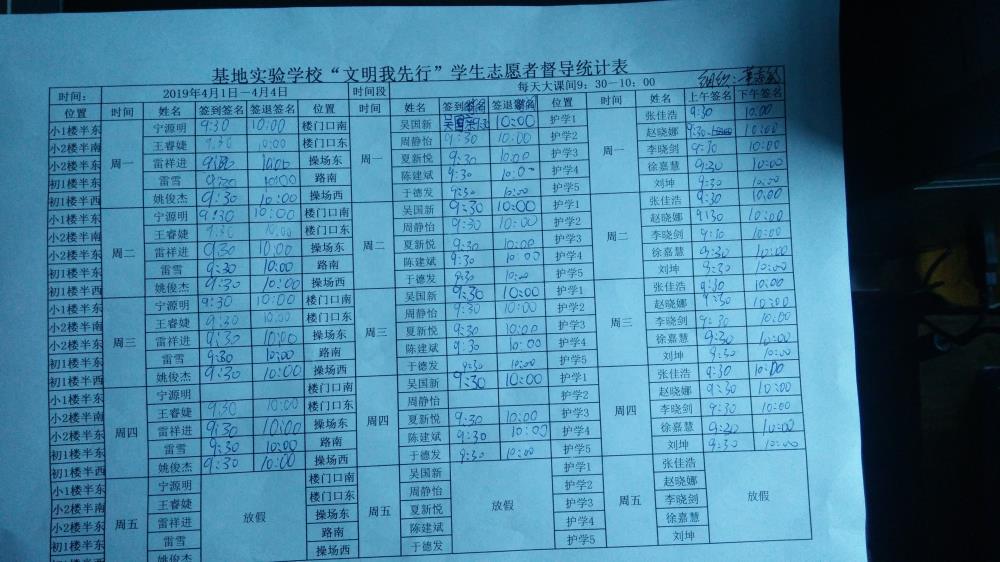 基地实验学校“文明我先行”学生志愿者督导统计表
时间: 2019年4月1日—4月4日 时间段 每天大课间9:30—10:00 组织:
位置 时间 姓名 签到签名 签退签名 位置 时间 姓名 签到签名 签退签名 位置 时间 姓名 上午签名 下午签名
小1楼半东 周一 宁源明 9:30 10:00 楼门口南 周一 吴国新 10:00 护学1 周一 张佳浩 9:30 10:00
小2楼半南 王睿婕 9:30 10:00 楼门口东 周静怡 9:30 10:00 护学2 赵晓娜 9:30 10:00
小2楼半东 雷祥进 9:30 10:00 操场东 夏新悦 9:30 10:00 护学3 李晓剑 9:30 10:00
初1楼半东 雷雪 9:30 10:00 路南 陈建斌 9:30 10:00 护学4 徐嘉慧 9:30 10:00
初1楼半西 姚俊杰 9:30 10:00 操场西 于德发 9:30 10:00 护学5 刘坤 9:30 10:00
小1楼半东 周二 宁源明 9:30 10:00 楼门口南 周二 吴国新 9:30 10:00 护学1 周二 张佳浩 9:30 10:00
小2楼半南 王睿婕 9:30 10:00 楼门口东 周静怡 9:30 10:00 护学2 赵晓娜 9:30 10:00
小2楼半东 雷祥进 9:30 10:00 操场东 夏新悦 9:30 10:00 护学3 李晓剑 9:30 10:00
初1楼半东 雷雪 9:30 10:00 路南 陈建斌 9:30 10:00 护学4 徐嘉慧 9:30 10:00
初1楼半西 姚俊杰 9:30 10:00 操场西 于德发 9:30 10:00 护学5 刘坤 9:30 10:00
小1楼半东 周三 宁源明 9:30 10:00 楼门口南 周三 吴国新 9:30 10:00 护学1 周三 张佳浩 9:30 10:00
小2楼半南 王睿婕 9:30 10:00 楼门口东 周静怡 9:30 10:00 护学2 赵晓娜 9:30 10:00
小2楼半东 雷祥进 9:30 10:00 操场东 夏新悦 9:30 10:00 护学3 李晓剑 9:30 10:00
初1楼半东 雷雪 9:30 10:00 路南 陈建斌 9:30 10:00 护学4 徐嘉慧 9:30 10:00
初1楼半西 姚俊杰 9:30 10:00 操场西 于德发 9:30 10:00 护学5 刘坤 9:30 10:00
小1楼半东 周四 宁源明 楼门口南 周四 吴国新 9:30 10:00 护学1 周四 张佳浩 9:30 10:00
小2楼半南 王睿婕 9:30 10:00 楼门口东 周静怡 护学2 赵晓娜 9:30 10:00
小2楼半东 雷祥进 9:30 10:00 操场东 夏新悦 9:30 10:00 护学3 李晓剑 9:30 10:00
初1楼半东 雷雪 9:30 10:00 路南 陈建斌 9:30 10:00 护学4 徐嘉慧 9:30 10:00
初1楼半西 姚俊杰 9:30 10:00 操场西 于德发 9:30 10:00 护学5 刘坤 9:30 10:00
小1楼半东 周五 宁源明 放假 楼门口南 周五 吴国新 放假 护学1 周五 张佳浩 放假
小2楼半南 王睿婕 楼门口东 周静怡 护学2 赵晓娜
小2楼半东 雷祥进 操场东 夏新悦 护学3 李晓剑
初1楼半东 雷雪 路南 陈建斌 护学4 徐嘉慧
初1楼半西 姚俊杰 操场西 于德发 护学5 刘坤